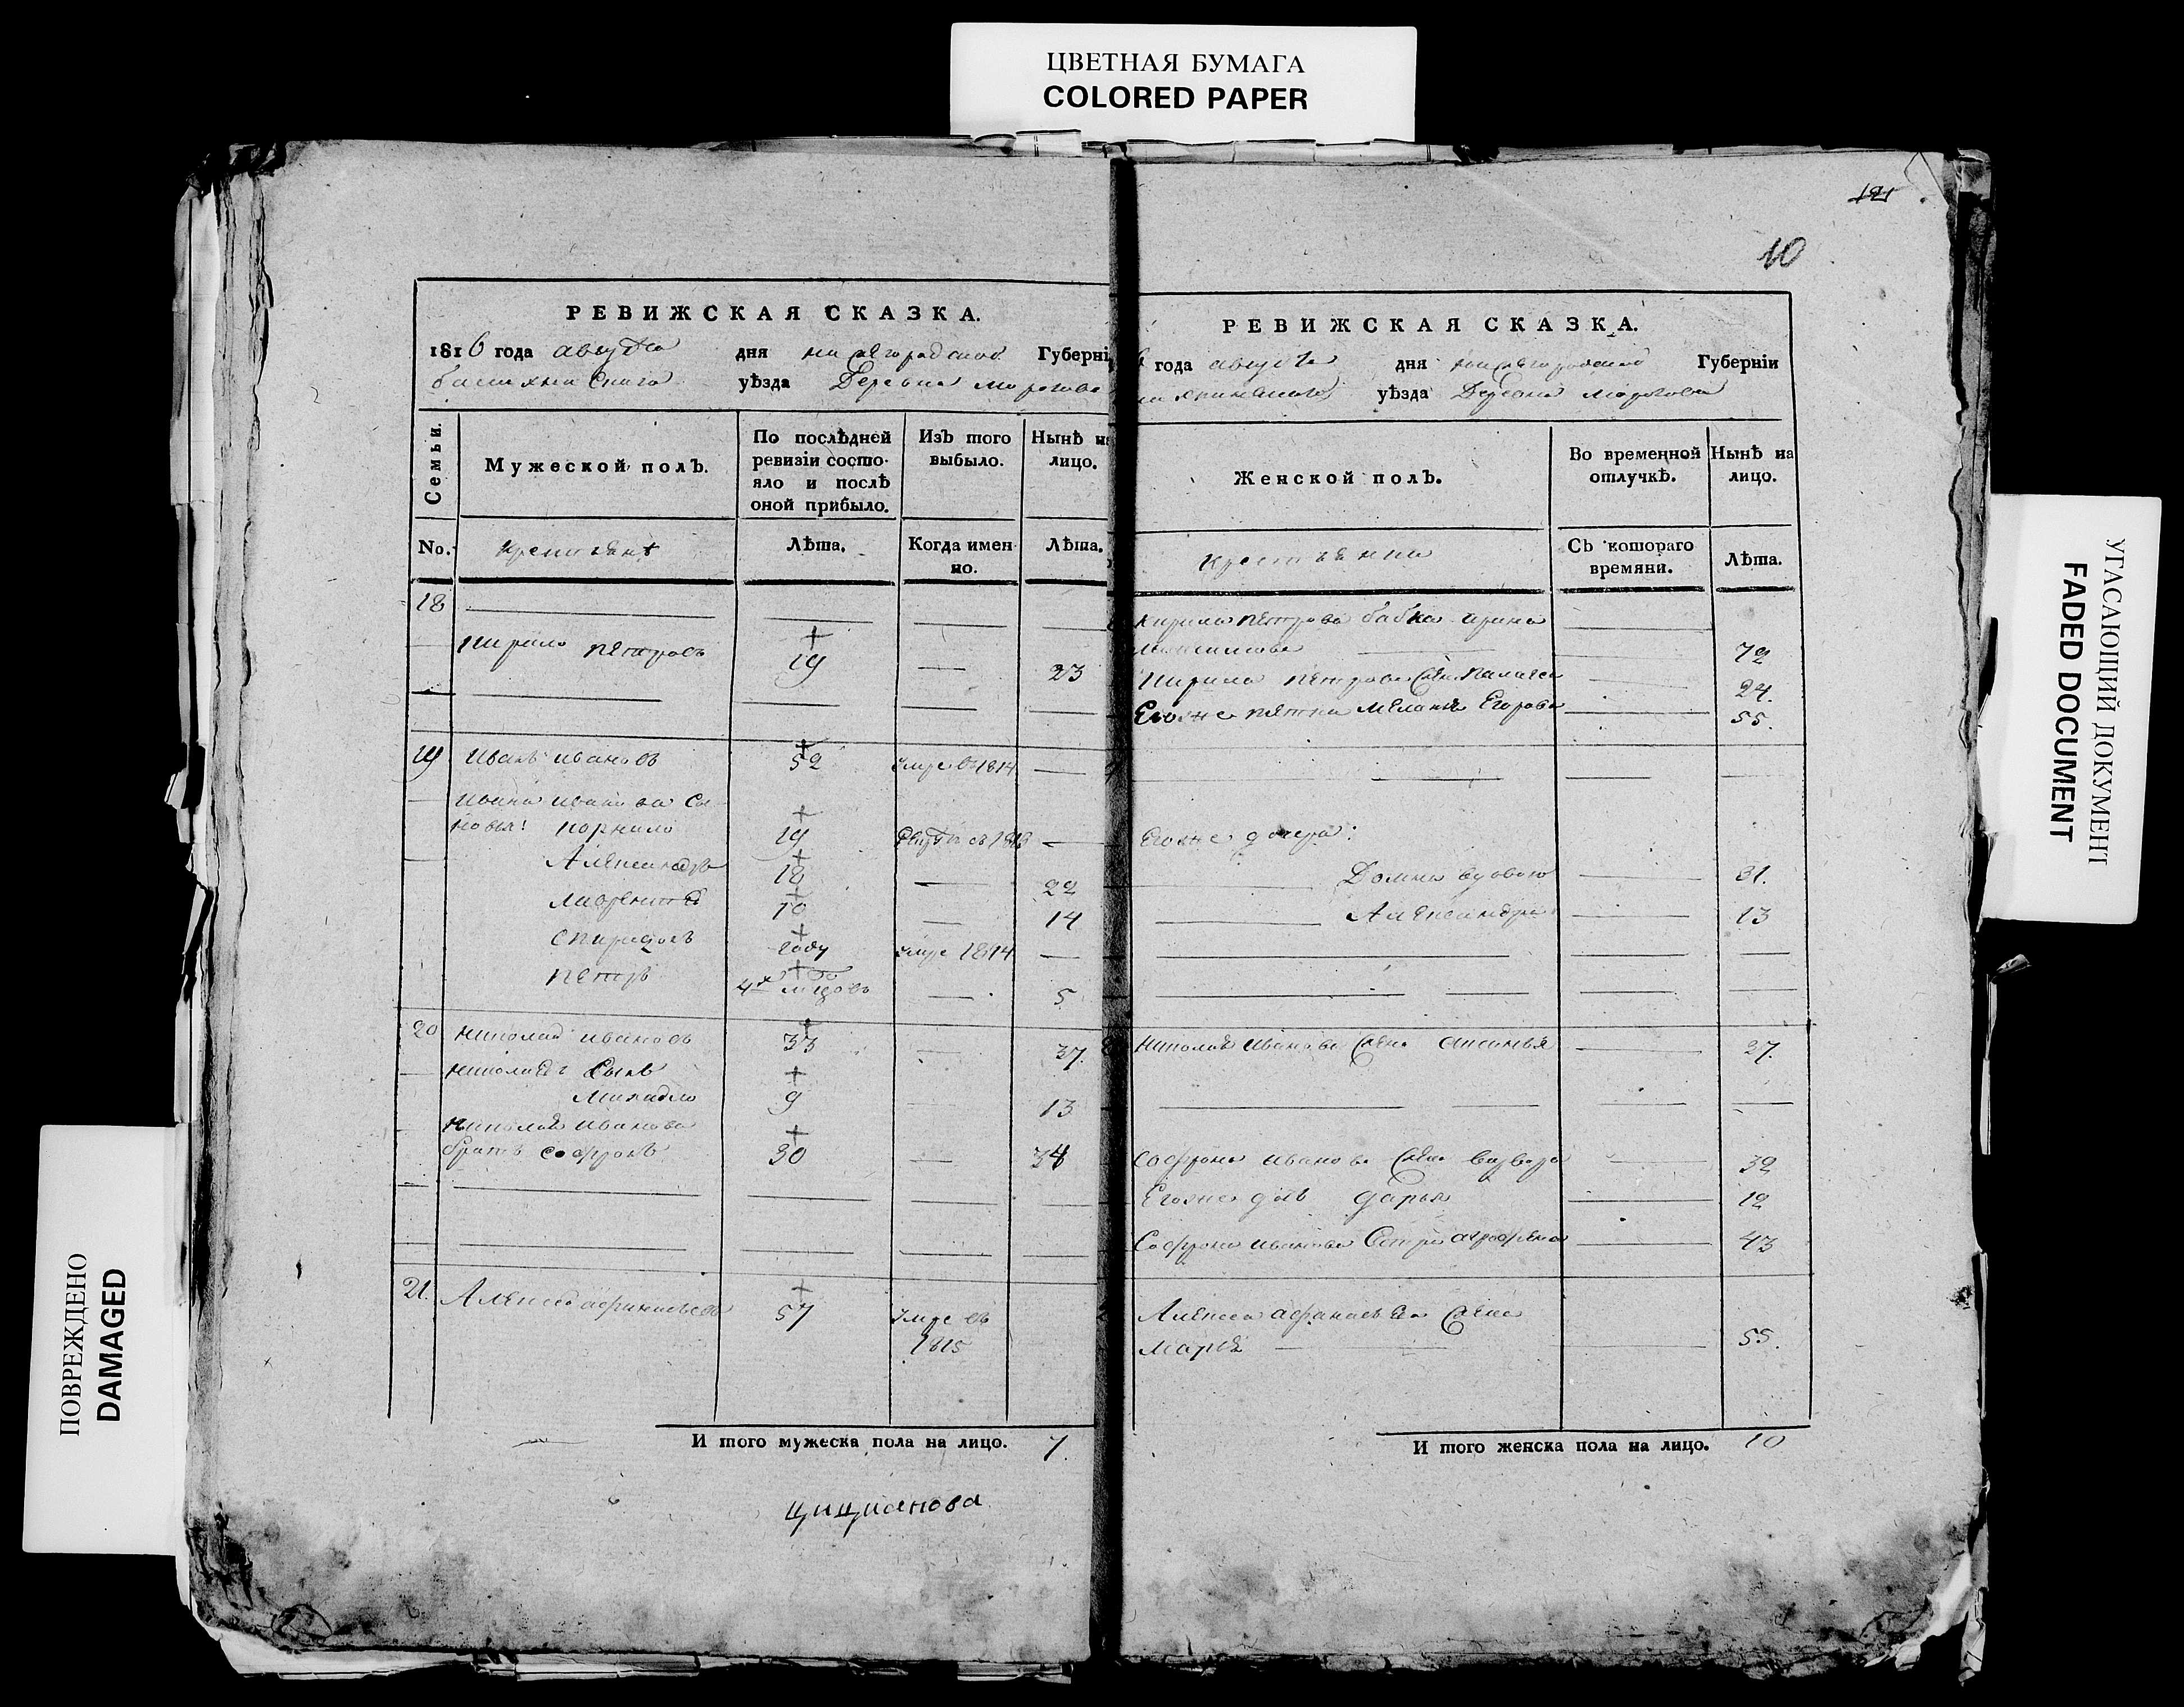 ЦВЕТНАЯ БУМАГА
COLORED PAPER
10
РЕВИЖСКАЯ СКАЗКА.
1816 года августа дня нижегородской Губерніи
уѣзда Деревня Морозова
Семьи.
Мужеской полъ.
По послѣдней
ревизіи состо-
яло и послѣ
оной прибыло.
Изъ того
выбыло.
Нынѣ на
лицо.
No.
крестьянѣ
Лѣта.
Когда имен-
но.
Лѣта.
18
Кирило Петровъ 19 23
19 Иванъ Ивановъ 52 умре въ 1814
Ивана Иванова сы-
новья: Корнило 19
Александръ 18 22
Лаврентей 10 14
Спиридонъ году умре 1814
Петръ 4х 5
20 Николай Ивановъ 33 37.
Николая Сынъ
Михайло 9 13
Николая Иванова
братъ Софронъ 30 34
21. Алексей Афанасьевъ 57 умре въ
1815
И того мужеска пола на лицо. 7.
Цицианова
РЕВИЖСКАЯ СКАЗКА.
6 года августа дня нижегородской Губерніи
уѣзда Деревня Морозова
Женской полъ.
Во временной
отлучкѣ.
Нынѣ на
лицо.
крестьянки
Съ котораго
времяни.
Лѣта.
Кирила Петрова бабка Арина
72
Кирила Петрова жена 24.
Егоже тетка Меланья Егорова 55.
Егоже дочери:
Домна вдовою 31.
Александра 13
Николая Иванова жена Аксинья 27.
Софрона Иванова жена 32
Егоже дочь Дарья 12
Софрона Иванова Сестра Аграфена 43
Алексея Афанасьева жена
Марья 55.
И того женска пола на лицо. 10
УГАСАЮЩИЙ ДОКУМЕНТ
FADED DOCUMENT
ПОВРЕЖДЕНО
DAMAGED